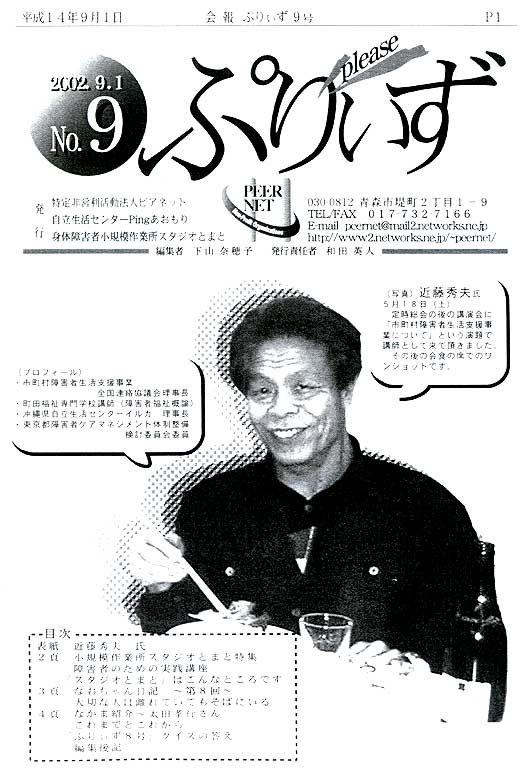 平成14年9月1日 会報 ぷりぃず9号 P1
2002.9.1
No.9
ぷりぃず
please
発行
特定非営利活動法人ピアネット
自立生活センターPingあおもり
身体障害者小規模作業所スタジオとまと
PEER
NET
030-0812 青森市堤町2丁目1-9
TEL/FAX 017-732-7166
E-mail peernet@mail2.networks.ne.jp
http://www2.networks.ne.jp/~peernet/
編集者 下山奈穂子 発行責任者 和田英人
(写真) 近藤秀夫氏
5月18日(土)
定時総会の後の講演会に
「市町村障害者生活支援事
業について」という演題で
講師として来て頂きました。
その後の会食の席でのワ
ンショットです。
(プロフィール)
・市町村障害者生活支援事業
全国連絡協議会理事長
・町田福祉専門学校講師(障害者福祉概論)
・沖縄県自立生活センターイルカ 理事長
・東京都障害者ケアマネジメント体制整備
検討委員会委員
目次
表紙 近藤秀夫 氏
2頁 小規模作業所スタジオとまと特集
障害者のための実践講座
スタジオとまと」はこんなところです
3頁 なおちゃん日記 ~第8回~
大切な人は離れていてもそばにいる
4頁 なかま紹介~太田孝行さん
これまでとこれから
「ぷりぃず8号」クイズの答え
編集後記